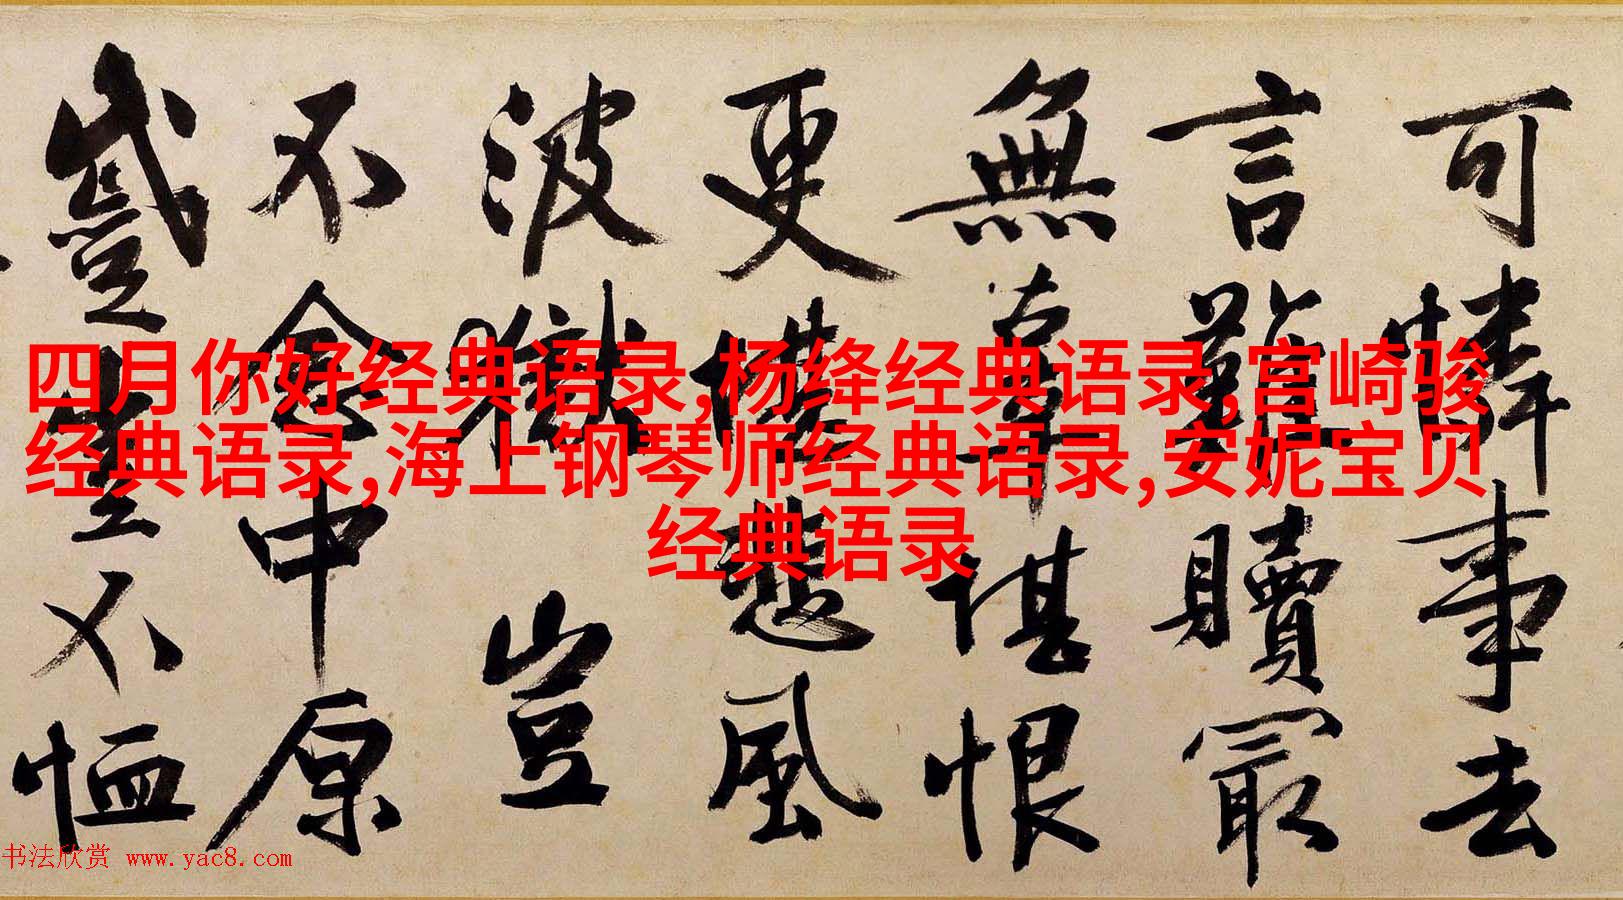 可憐事去
言難贖冣
無辜堪恨
更悲風
波獄豈
不念中原
豈不恤
四月你好经典语录,杨绛经典语录,宫崎骏
经典语录,海上钢琴师经典语录,安妮宝贝
经典语录
书法欣赏 www.yac8.com